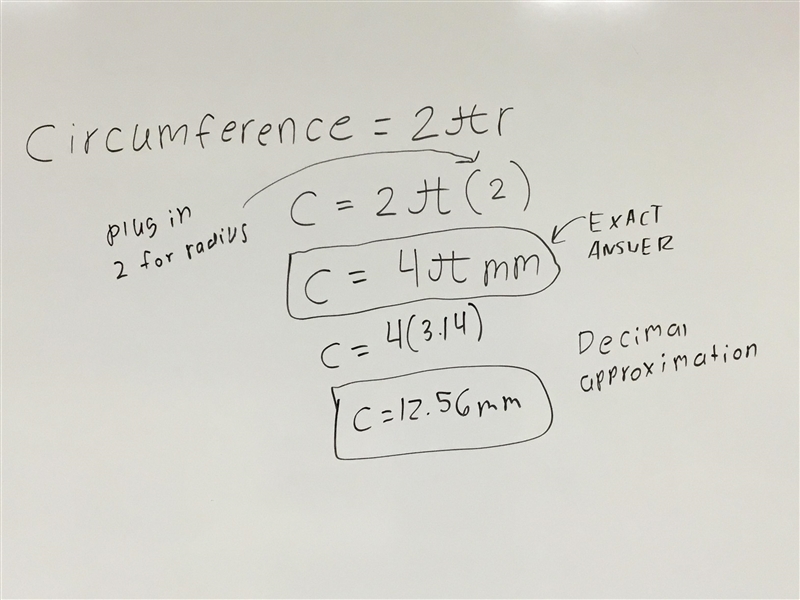 Circumference = 2πr
plug in
2 for radius
C = 2π(2)
C = 4π mm
EXACT
ANSWER
C = 4(3.14)
C = 12.56 mm
Decimal
approximation